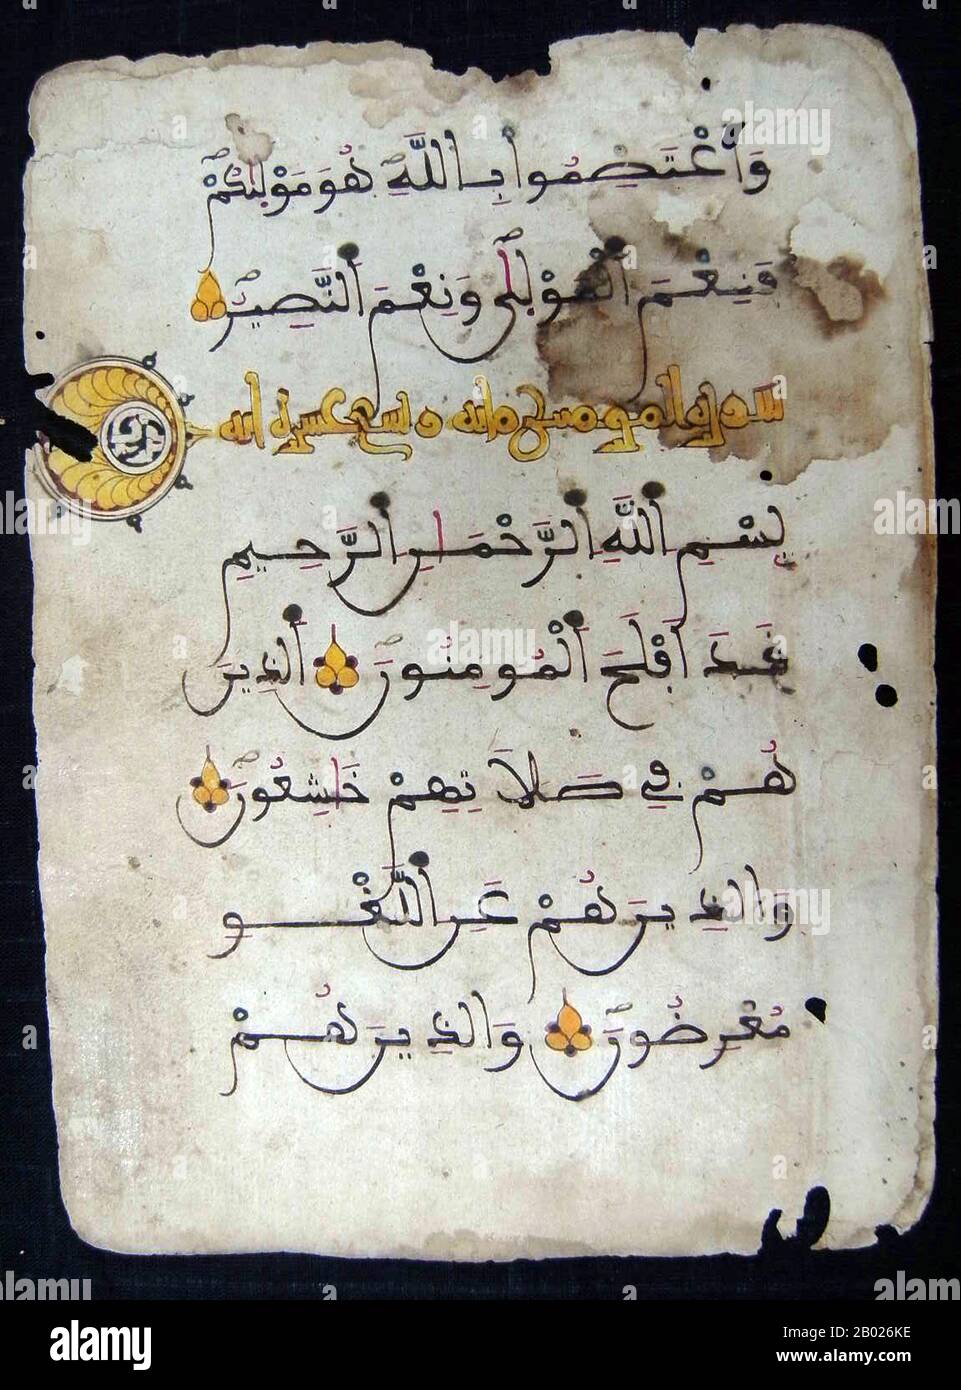 وَاعْتَصِمُوا بِاللَّهِ هُوَ مَوْلَىٰكُمْ
فَنِعْمَ الْمَوْلَىٰ وَنِعْمَ النَّصِيرُ
سورة المومنون مائة وتسع عشرة اية
بِسْمِ اللَّهِ الرَّحْمَٰنِ الرَّحِيمِ
قَدَ اَفْلَحَ الْمُومِنُونَ الَّذِينَ
هُمْ فِي صَلَاتِهِمْ خَٰشِعُونَ
وَالَّذِينَ هُمْ عَنِ اللَّغْوِ
مُعْرِضُونَ وَالَّذِينَ هُمْ
alamy
Image ID: 2B026KE
www.alamy.com